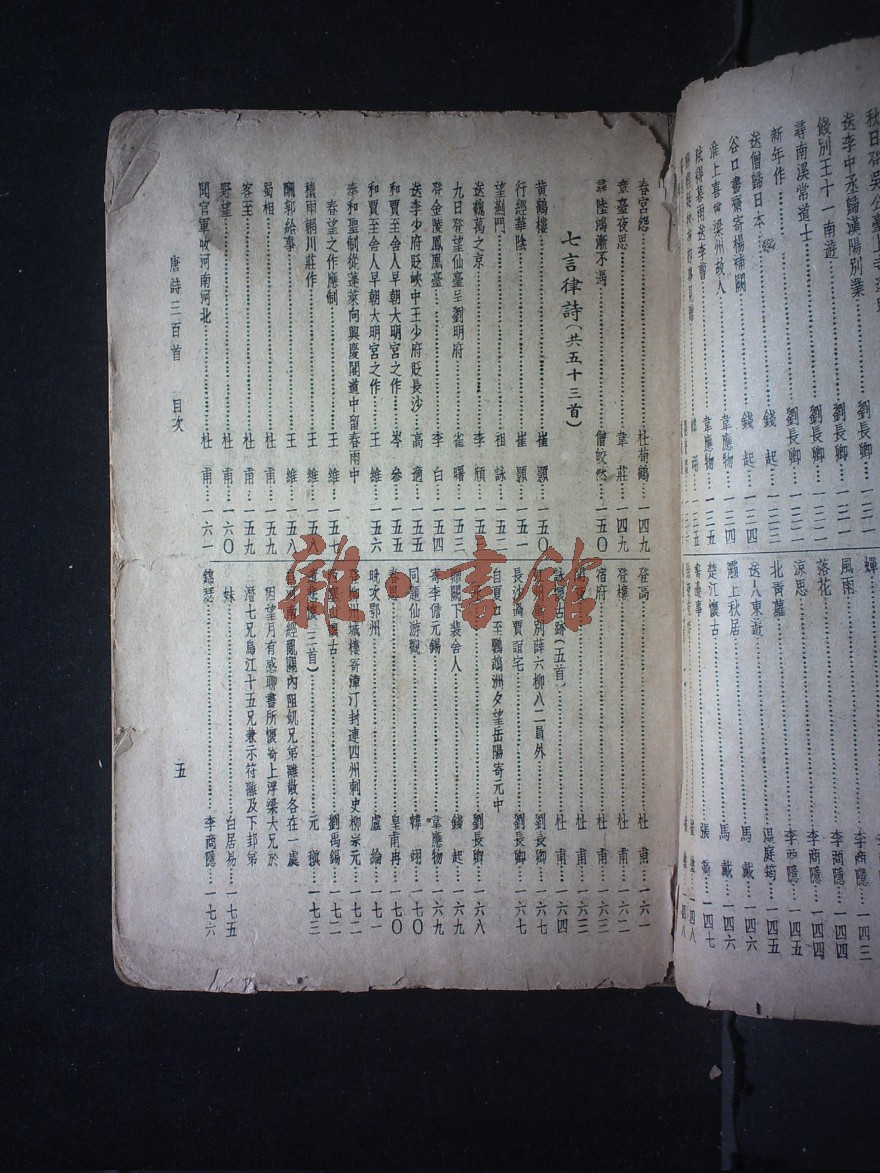 送李中丞歸漢陽別業……劉長卿…一三一
餞別王十一南遊……劉長卿…一三二
尋南溪常道士……劉長卿…一三二
新年作……劉長卿…一三三
送僧歸日本……錢 起…一三四
谷口書齋寄楊補闕……錢 起…一三四
淮上喜會梁州故人……韋應物…一三四
賦得暮雨送李曹……韋應物…一三五
蟬……李商隱…一四三
風雨……李商隱…一四四
落花……李商隱…一四四
涼思……李商隱…一四五
北青蘿……
送人東遊……溫庭筠…一四五
灞上秋居……馬 戴…一四六
楚江懷古……馬 戴…一四六
張 喬…一四七
春宮怨……杜荀鶴…一四九
章臺夜思……韋 莊…一四九
尋陸鴻漸不遇……僧皎然…一五〇
七言律詩(共五十三首)
黃鶴樓……崔 顥…一五〇
行經華陰……崔 顥…一五一
望薊門……祖 詠…一五二
送魏萬之京……李 頎…一五三
九日登望仙臺呈劉明府……崔 曙…一五三
登金陵鳳凰臺……李 白…一五四
送李少府貶峽中王少府貶長沙…高 適…一五五
和賈至舍人早朝大明宮之作……岑 參…一五五
和賈至舍人早朝大明宮之作……王 維…一五六
奉和聖制從蓬萊向興慶閣道中留春雨中
春望之作應制……王 維…一五七
積雨輞川莊作……王 維…一五八
酬郭給事……王 維…一五八
蜀相……杜 甫…一五九
客至……杜 甫…一五九
野望……杜 甫…一六〇
聞官軍收河南河北……杜 甫…一六一
登高……杜 甫…一六一
登樓……杜 甫…一六二
宿府……杜 甫…一六三
閣夜……杜 甫…一六三
詠懷古跡(五首)……杜 甫…一六四
江州重別薛六柳八二員外……劉長卿…一六七
長沙過賈誼宅……劉長卿…一六七
自夏口至鸚鵡洲夕望岳陽寄元中
劉長卿…一六八
贈闕下裴舍人……錢 起…一六九
寄李儋元錫……韋應物…一六九
同題仙游觀……韓 翃…一七〇
春思……皇甫冉…一七〇
晚次鄂州……盧 綸…一七一
登柳州城樓寄漳汀封連四州刺史柳宗元…一七二
西塞山懷古……劉禹錫…一七二
遣悲懷(三首)……元 稹…一七三
自河南經亂關內阻飢兄弟離散各在一處
因望月有感聊書所懷寄上浮梁大兄於
潛七兄烏江十五兄兼示符離及下邽弟
妹……白居易…一七五
錦瑟……李商隱…一七六
唐詩三百首 目次
五
雜·書館